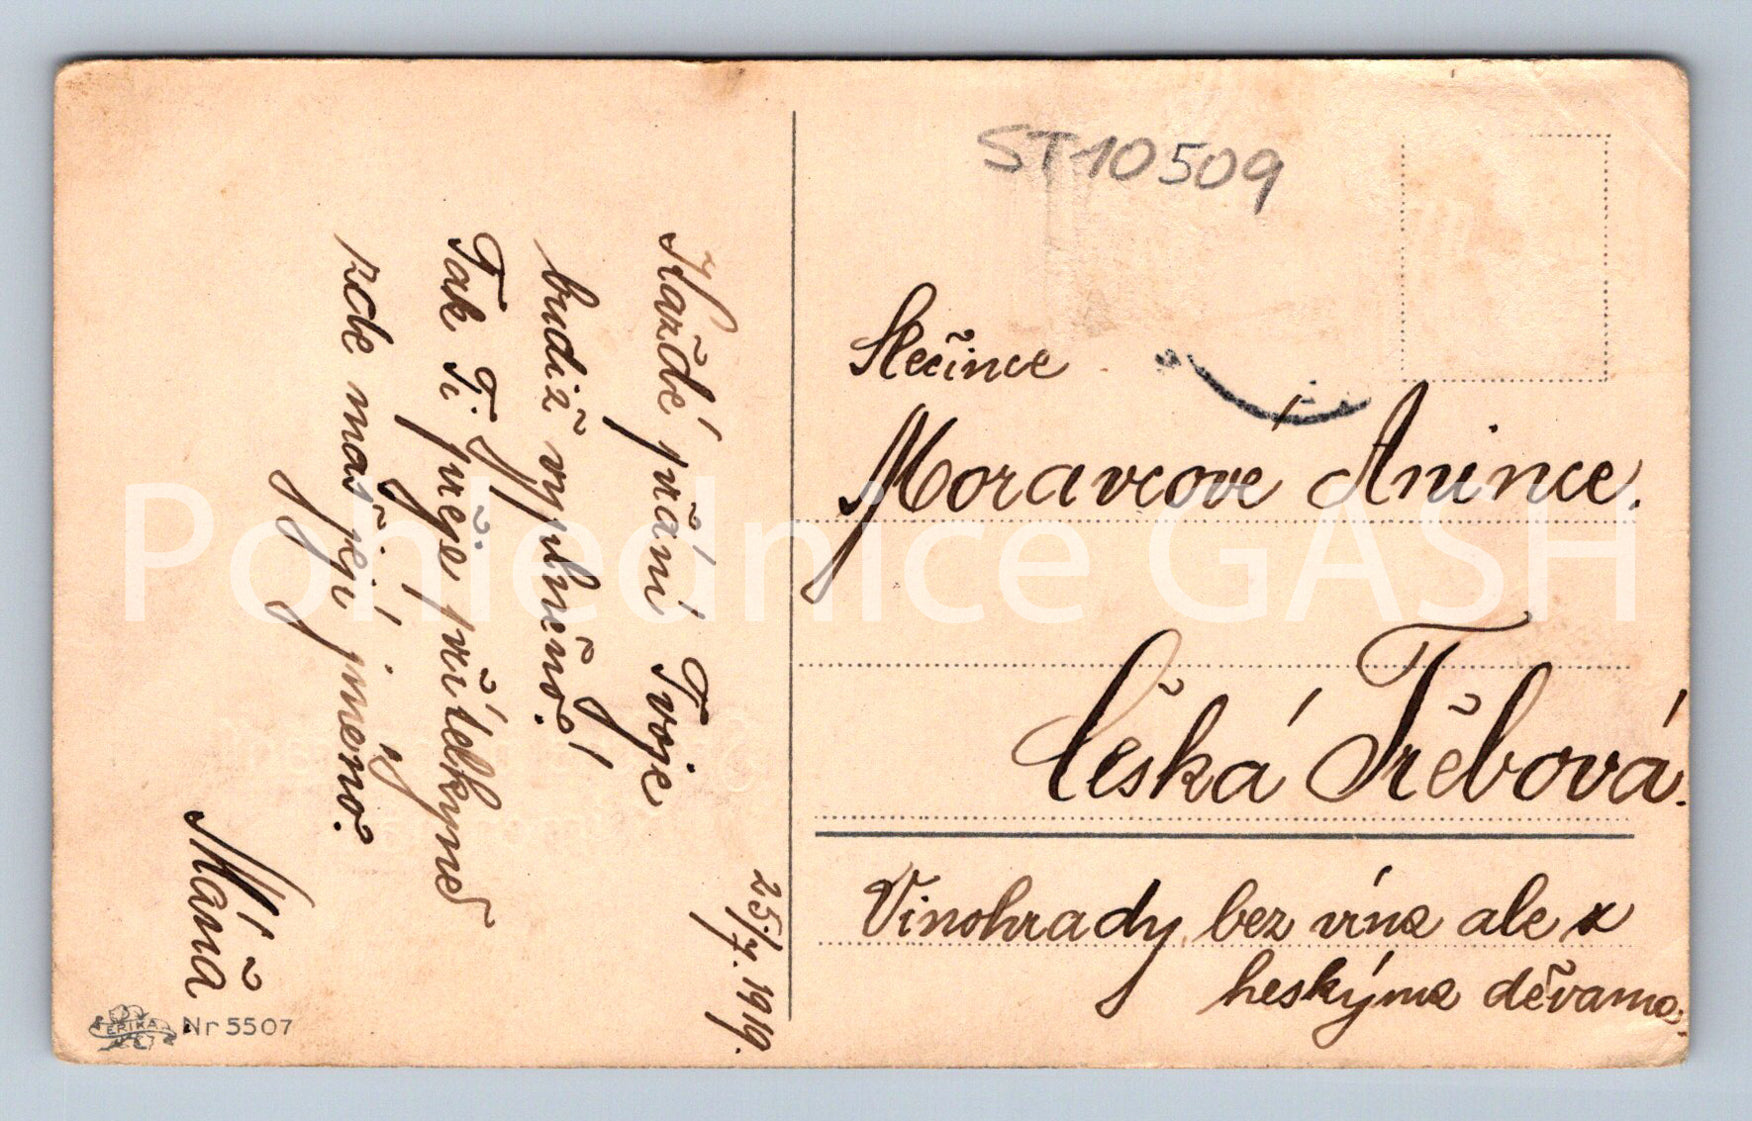 25/7. 1919.
Každé přání Tvoje
budiž vyplněno!
Tak Ti přeje přítelkyně
zde máš její jméno.
Máňa
ERIKA Nr 5507
ST10509
Slečince
Moravcové Anince.
Česká Třebová.
Vinohrady bez vína ale z
heskýma děvama.
Pohlednice GASH